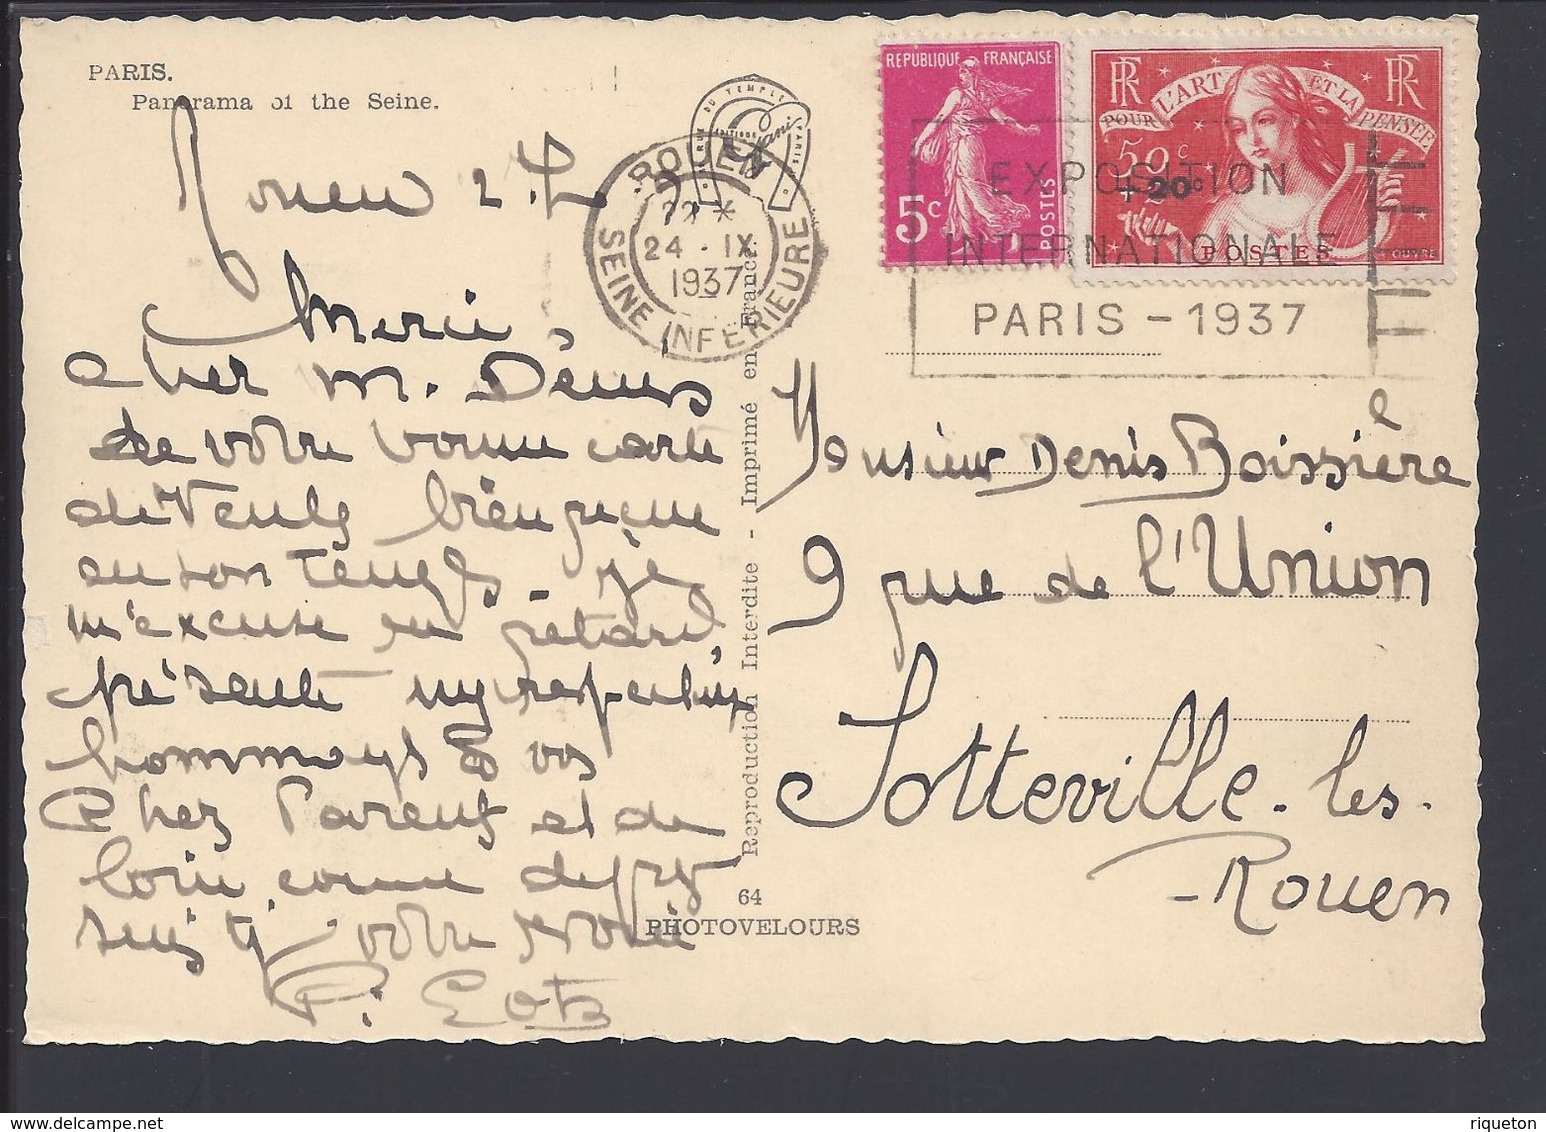 PARIS.
Panorama of the Seine.
Rouen 2
Merci
cher M. Denis
de votre bonne carte
de Veules bien reçue
en son temps je
m'excuse en retard
présente mes respectueux
hommages à vos
Chez Parents et de
loin comme de près
suis votre
P.
ROUEN
22 *
24 - IX
1937
SEINE INFERIEURE
EDITIONS
DU TEMPLE
PARIS
REPUBLIQUE FRANÇAISE
5c
POSTES
RF
POUR L'ART ET LA PENSÉE
RF
50c
+20c
POSTES
EXPOSITION
INTERNATIONALE
PARIS - 1937
Reproduction Interdite - Imprimé en France.
64
PHOTOVELOURS
Monsieur Denis Boissière
9 rue de l'Union
Sotteville-les-
-Rouen
riqueton